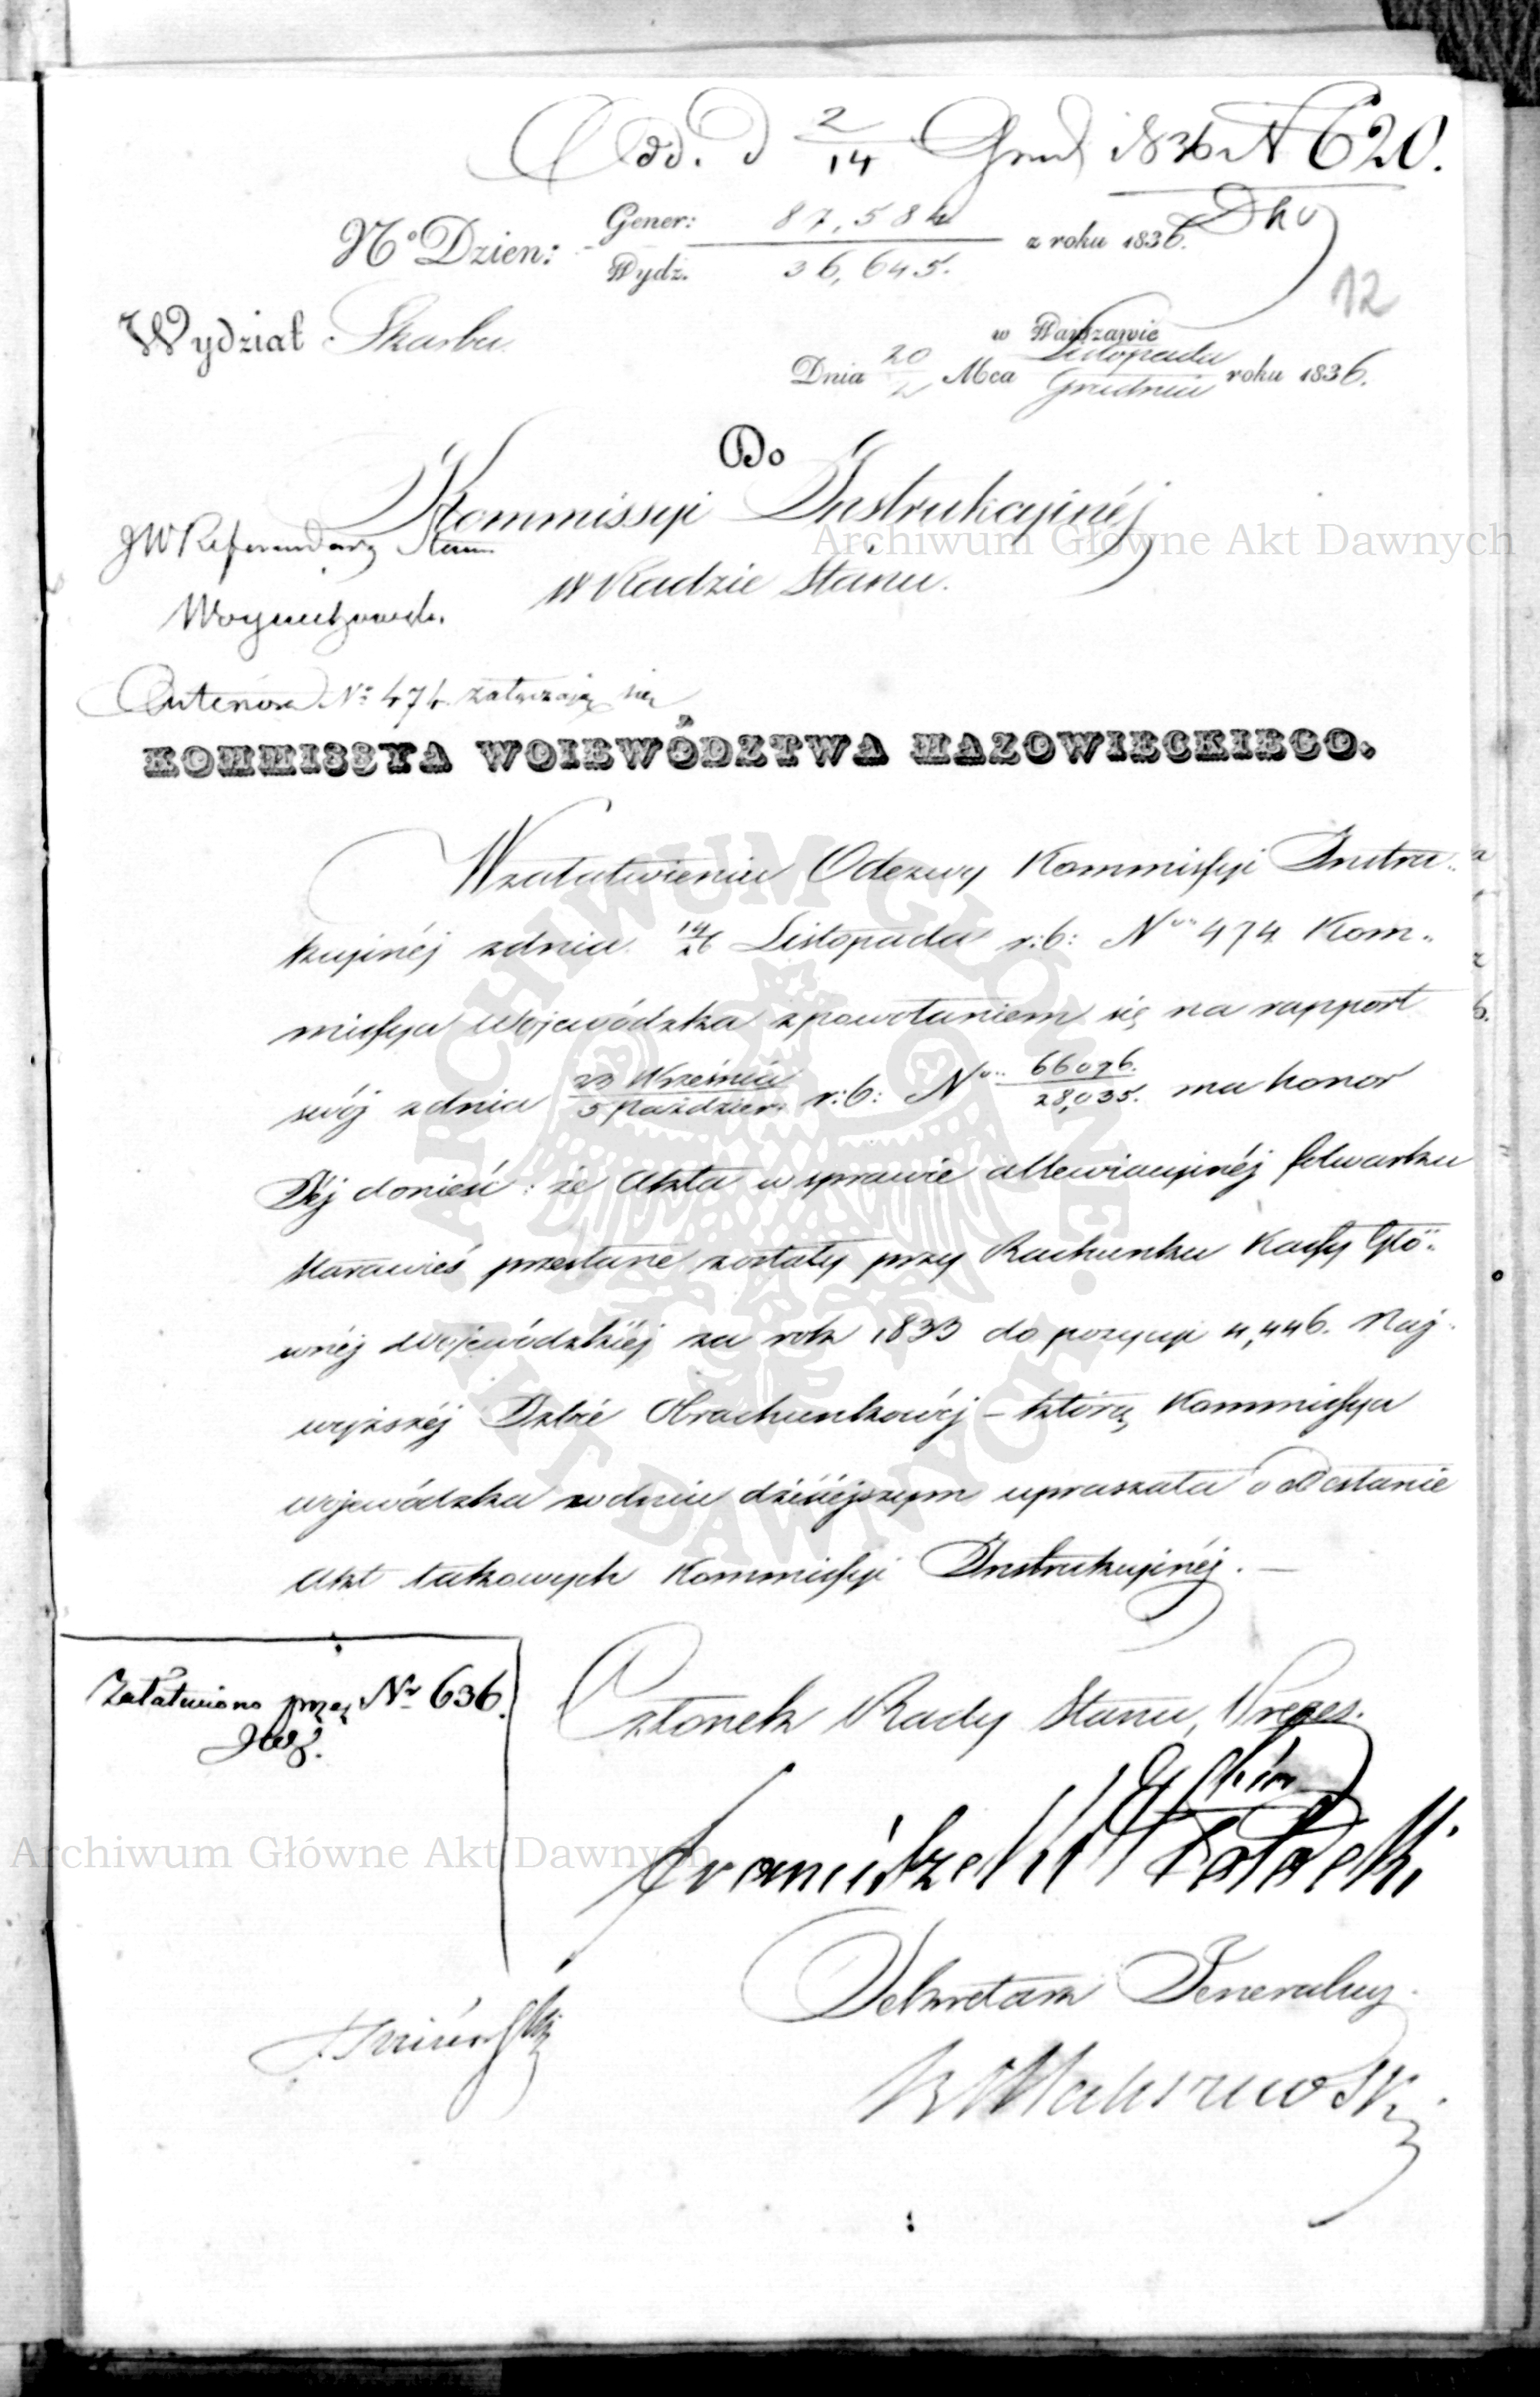 Odd. d 2/14 Grud 1836 N 620.
Nº Dzien: Gener: 87,584 / Wydz. 36,645. z roku 1836.
12
Wydział Skarbu
w Warszawie
Dnia 20/2 Mca Listopada/Grudnia roku 1836.
Do
Kommissyi Instrukcyjnéj
w Radzie Stanu.
JW Referendarz Stanu
Woyciechowski.
Anteriora Nº 474 załączają się
KOMMISSYA WOIEWÓDZTWA MAZOWIECKIEGO.
W załatwieniu Odezwy Kommissyi Instru-
kcyjnéj z dnia 14/26 Listopada r: b: Nro 474 Kom-
missya Wojewódzka z powołaniem się na rapport
swój z dnia 23 Września/5 Paździer: r: b: Nro 66096./28,035. ma honor
Jéj donieść: że Akta w sprawie allewiacyjnéj folwarku
Starawieś przesłane zostały przy Rachunku Kassy Głó-
wnéj Wojewódzkiéj za rok 1833 do pozycyi 4,446. Naj-
wyższéj Izbie Obrachunkowéj – którą Kommissya
wojewódzka w dniu dzisiéjszym upraszała o odesłanie
akt takowych Kommissyi Instrukcyjnéj. –
Załatwiono przez Nr 636.
Członek Rady Stanu, Prezes.
Franciszek Potocki
Sekretarz Jeneralny.
Archiwum Główne Akt Dawnych
Archiwum Główne Akt Dawnych
ARCHIWUM GŁÓWNE AKT DAWNYCH